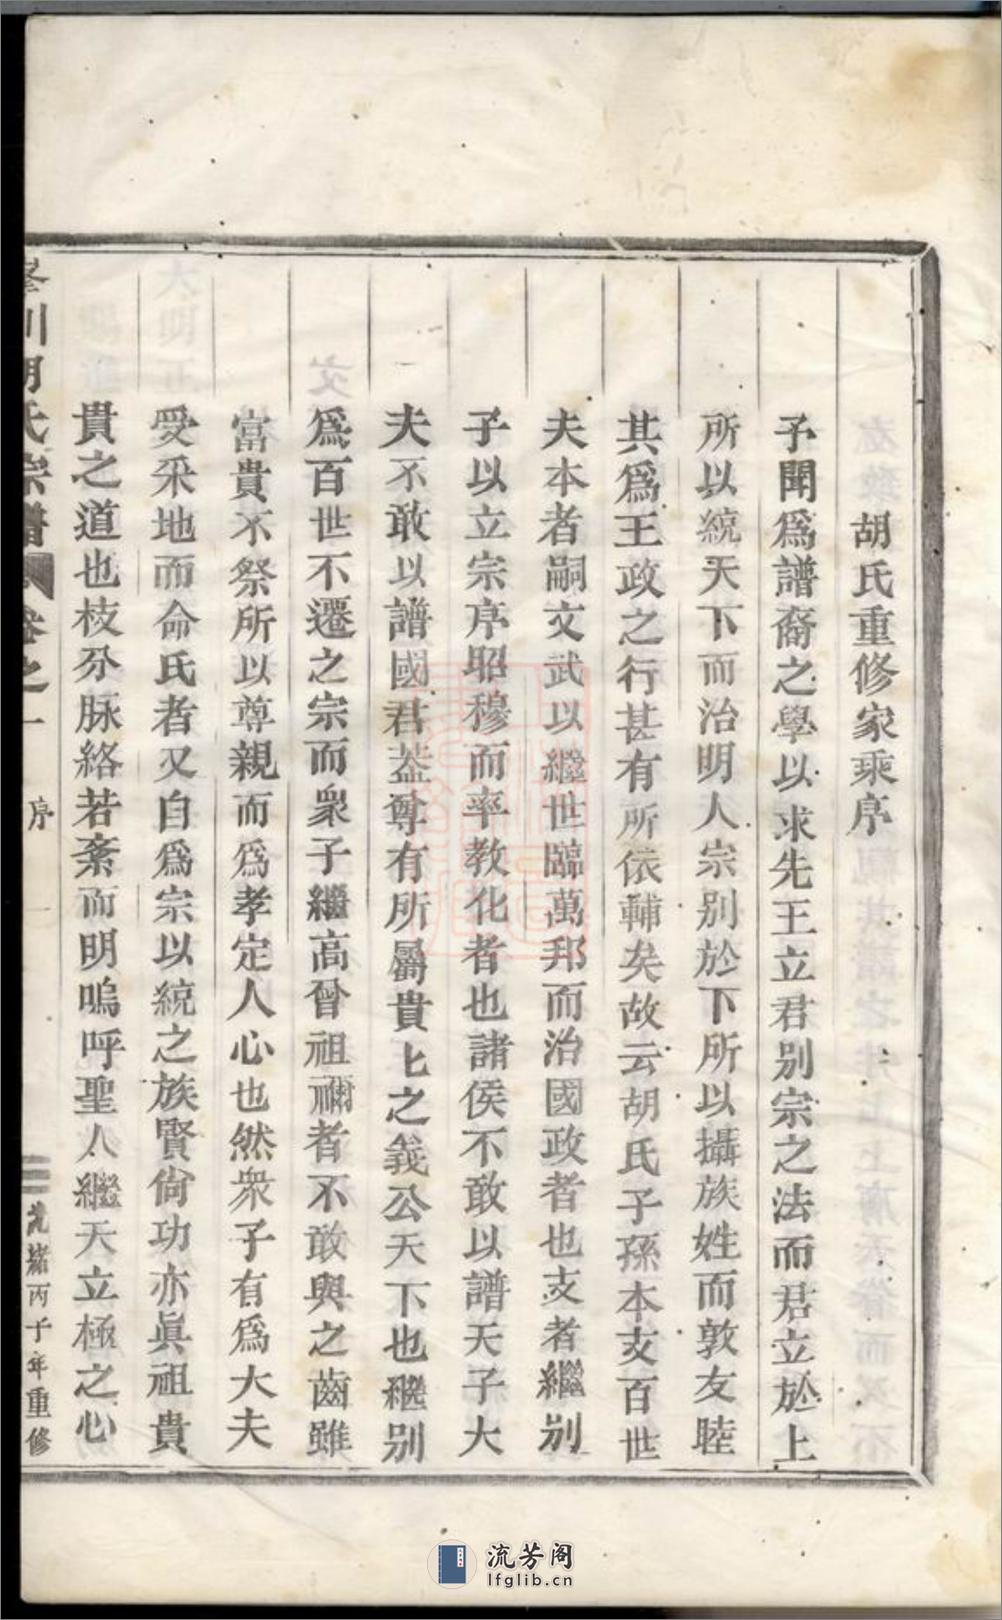 胡氏重修家乘序
予聞爲譜裔之學以求先王立君別宗之法而君立於上
所以統天下而治明人宗别於下所以攝族姓而敦友睦
其爲王政之行甚有所依輔矣故云胡氏子孫本支百世
夫本者嗣文武以繼世臨萬邦而治國政者也支者繼别
子以立宗序昭穆而率教化者也諸侯不敢以譜天子大
夫不敢以譜國君盖尊有所屬貴上之義公天下也繼别
爲百世不遷之宗而衆子繼高曾祖禰者不敢與之齒雖
富貴不祭所以尊親而爲孝定人心也然衆子有爲大夫
受采地而命氏者又自爲宗以統之族賢尚功亦眞祖貴
貴之道也枝分脉絡若紊而明嗚呼聖人繼天立極之心
川胡氏宗譜 卷之一 序 一 光緒丙子年重修
流芳阁
lfglib.cn